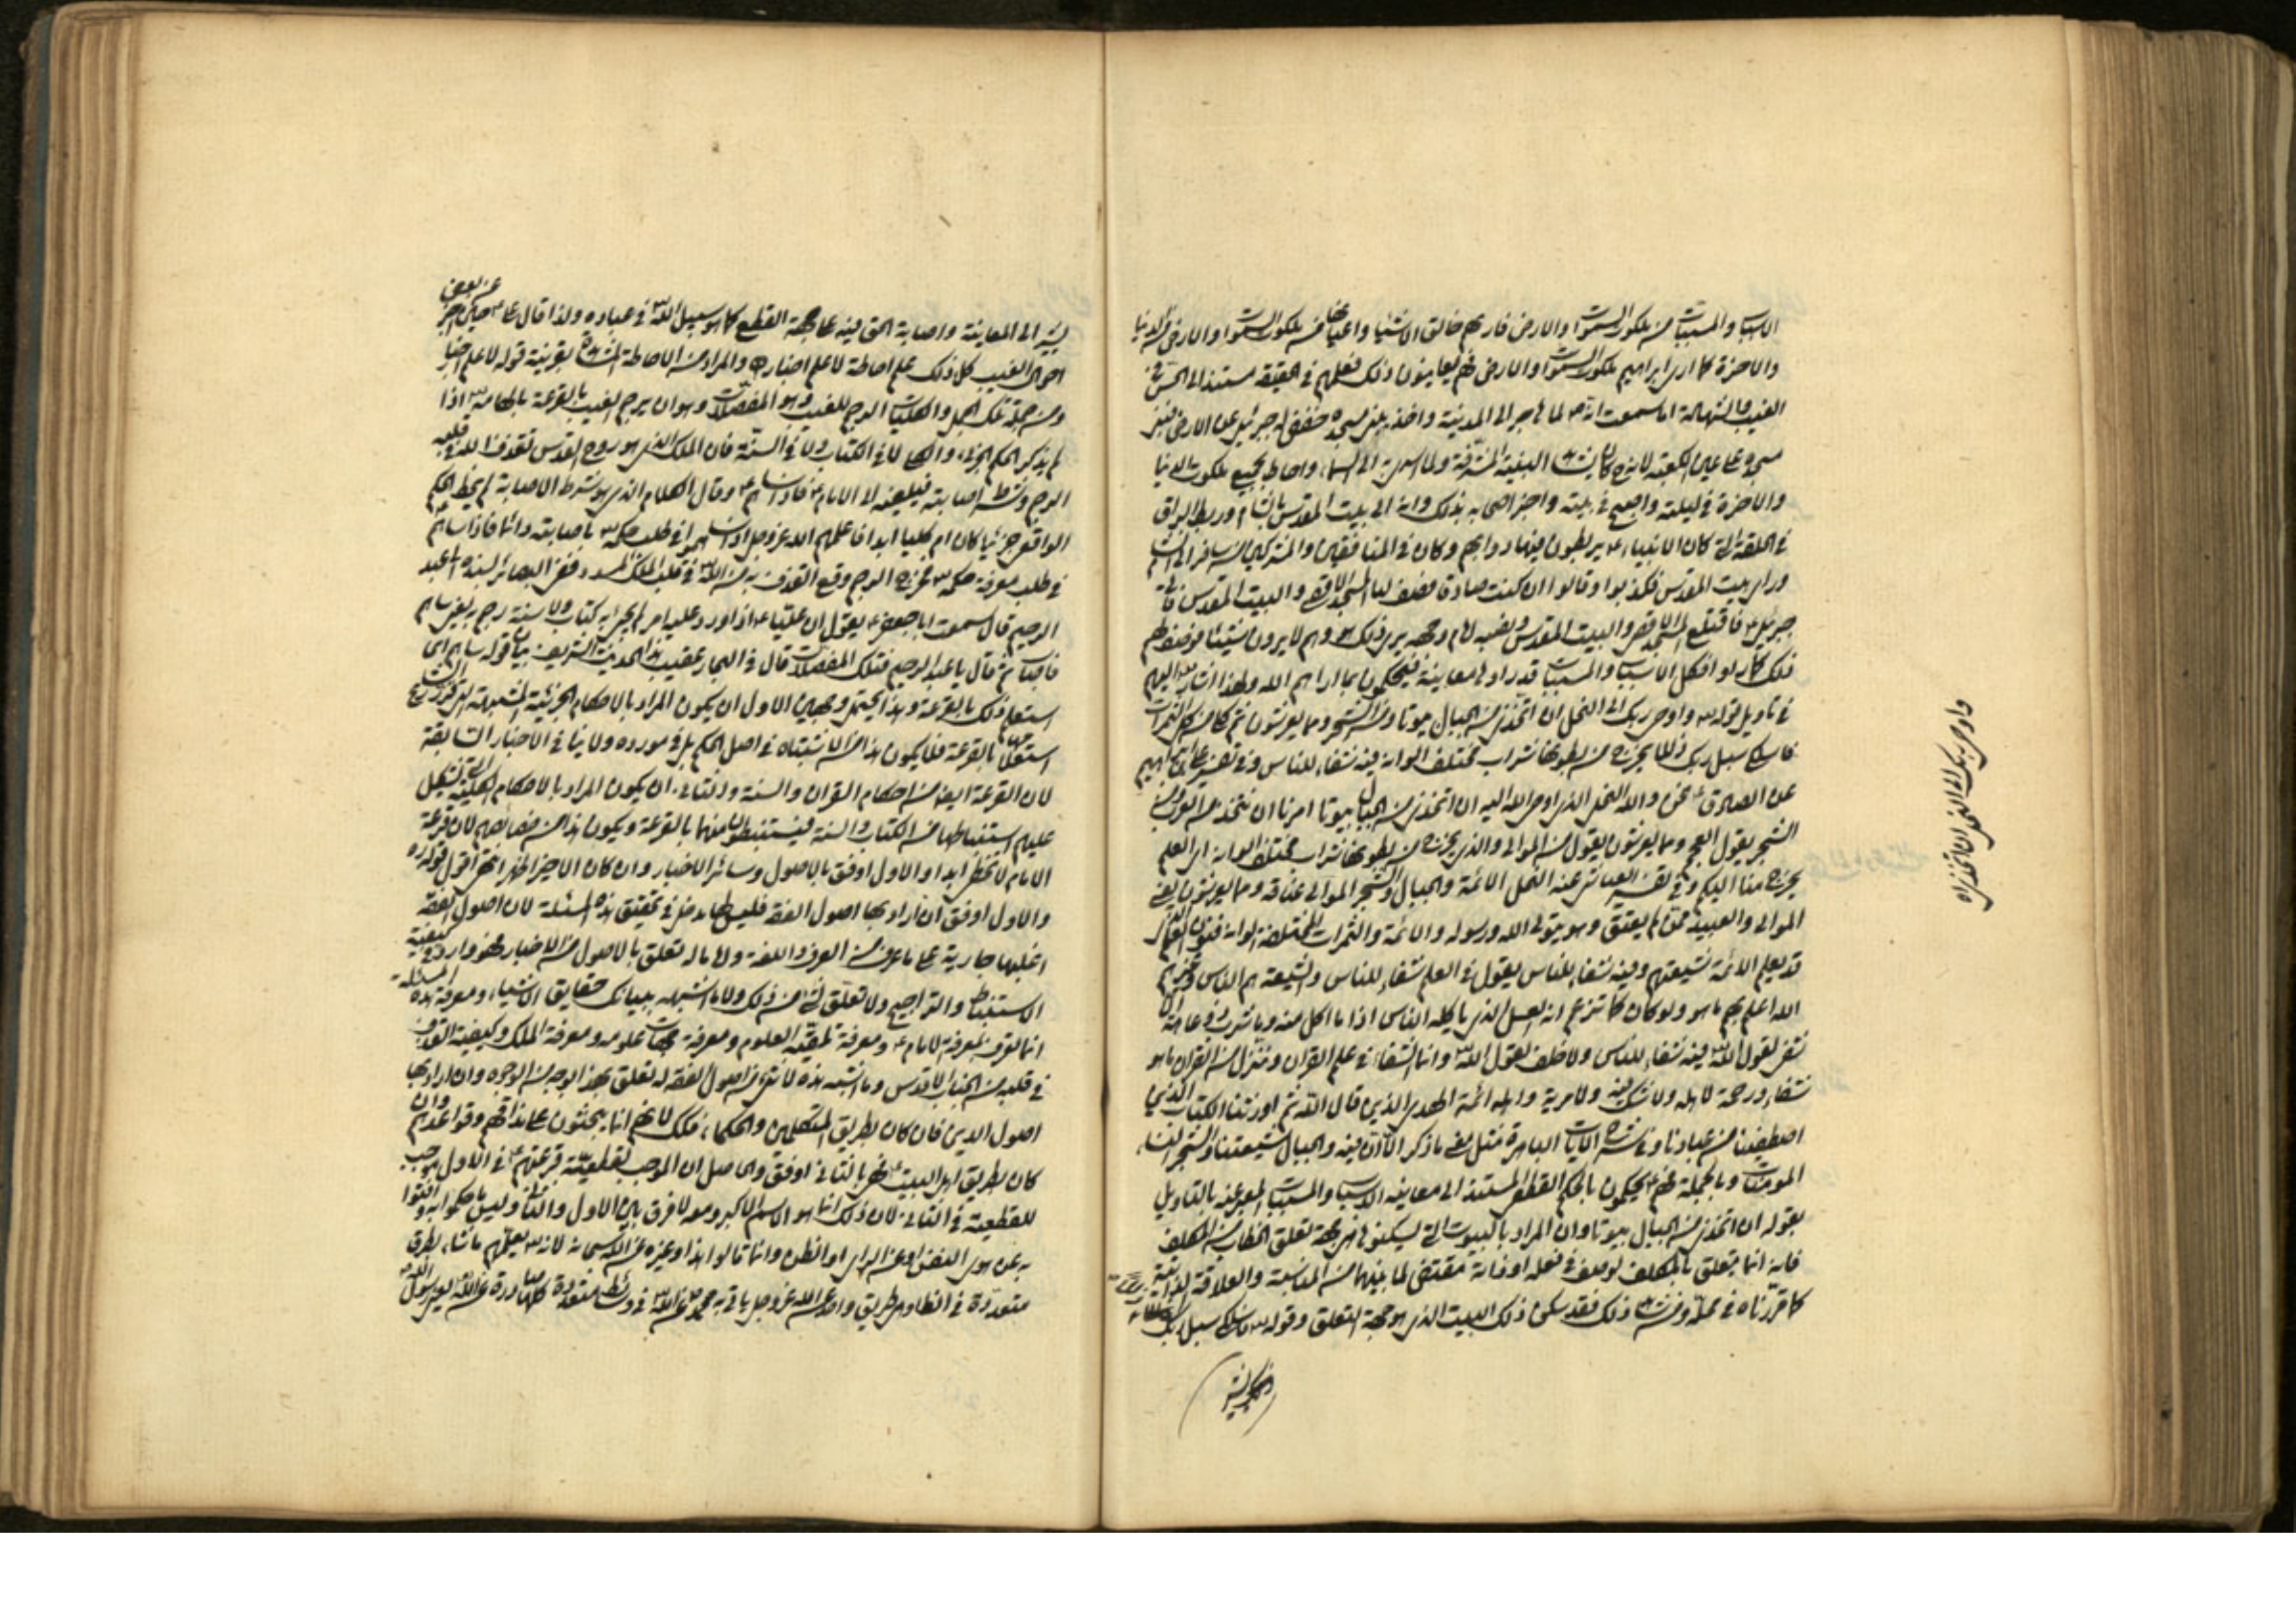 الاسباب والمسببات من ملكوت السموات والارض فاريهم خالق الاشياء واعيانها من ملكوت السموات والارض في الدنيا
والاخرة كما ارى ابراهيم ملكوت السموات والارض فهم يعاينون ذلك فعلمهم في الحقيقة مستند الى الحس في
الغيب والشهادة اما سمعت انه ص لما هاجر الى المدينة واخذ يبني مسجده خفض له جبرئيل عن الارض فبنى
مسجده على عين الكعبة لانه كان يشاهد البنية المشرفة ولما اسرى به الى السماء واحاط بجميع ملكوت الدنيا
والاخرة في ليلته واصبح في بيته واخبر اصحابه بذلك وانه اتى بيت المقدس بالشام وربط البراق
في الحلقة التي كان الانبياء ع يربطون فيها دوابهم وكان في المنافقين والمشركين من سافر الى الشام
وراى بيت المقدس فكذبوا وقالوا ان كنت صادقا فصف لنا المسجد الاقصى والبيت المقدس فاتى
جبرئيل ع فاقتلع المسجد الاقصى والبيت المقدس ونصبه امام وجهه يرى ذلك هو وهم لا يرون شيئا فوصفه لهم
ذلك كما راوا فكل الاسباب والمسببات قد راوها معاينة فيحكمون بما اراهم الله ولهذا اشار اليهم
في تاويل قوله تع واوحى ربك الى النحل ان اتخذي من الجبال بيوتا ومن الشجر ومما يعرشون ثم كلي من كل الثمرات
فاسلكي سبل ربك ذللا يخرج من بطونها شراب مختلف الوانه فيه شفاء للناس وفي تفسير علي بن ابراهيم
عن الصادق ع نحن والله النحل الذي اوحى الله اليه ان اتخذي من الجبال بيوتا امرنا ان نتخذ من العرب شيعة ومن
الشجر يقول من العجم ومما يعرشون يقول من الموالي والذي يخرج من بطونها شراب مختلف الوانه اي العلم
يخرج منا اليكم وفي تفسير العياشي عنه النحل الائمة والجبال العرب والشجر الموالي عتاقه ومما يعرشون يعني
الموالي والعبيد ممن لم يعتق وهو يتولى الله ورسوله والائمة والثمرات المختلفة الوانه فنون العلم الذي
قد يعلم الائمة شيعتهم وفيه شفاء للناس يقول في العلم شفاء للناس والشيعة هم الناس وغيرهم
الله اعلم بهم ما هو ولو كان كما تزعم انه العسل الذي ياكله الناس اذا ما اكل منه وما شرب ذو عاهة الا
شفي لقول الله تع فيه شفاء للناس ولا خلف لقول الله تع وانما الشفاء في علم القران وننزل من القران ما هو
شفاء ورحمة لاهله ولا شك فيه ولا مرية واهله ائمة الهدى الذين قال الله ثم اورثنا الكتاب الذين
اصطفينا من عبادنا وفي شرح الايات الباهرة مثل ما ذكر الا ان فيه والجبال شيعتنا والشجر النساء
المؤمنات وبالجملة فهم ع يحكمون بالحكم القطعي المستند الى معاينة الاسباب والمسببات المعبر عنه بالتاويل
بقوله ان اتخذي من الجبال بيوتا وان المراد بالبيوت التي يسكنونها هي جهة تعلق الخطاب من المكلف
فانه انما يتعلق بالمكلف لوصف في فعله او ذاته مقتضى لما بينهما من المناسبة والعلاقة
كما قررناه في محله ومن شاهد ذلك فقد سكن ذلك البيت الذي هو جهة التعلق وقوله تع فاسلكي سبل ربك
واوحى ربك الى النحل ان اتخذي
عن بعض
يشير الى المعاينة واصابة الحق فيه على جهة القطع كما هو سبيل الله تع في عباده ولذا قال علي ع حين اخبر
احوال الغيب كل ذلك علم احاطة لا علم اخبار والمراد من الاحاطة المشاهدة بقرينة قوله لا علم اخبار
ومن جملة تلك الجمل والكليات الرجم للغيب وهو المفصلات وهو ان يرجم الغيب بالقرعة بالهامه تع اذا
لم يذكر الحكم الجزئي والكلي لا في الكتاب ولا في السنة فان الملك الذي هو روح القدس تقذف الله في قلبه
الرجم وشرط اصابته فيلقيه الى الامام ع فاذا ساهم ع وقال الكلام الذي هو شرط الاصابة لم يخط الحكم
الواقعي جزئيا كان ام كليا ابدا فاعلمهم الله عز وجل اذا ساهموا في طلب حكمه تع باصابته دائما فاذا ساهم ع
في طلب معرفة حكمه تع فخرج الرجم وقع القذف به من الله تع في قلب الملك المسدد ففي البصائر بسنده الى عبد
الرحيم قال سمعت ابا جعفر ع يقول ان عليا ع اذا ورد عليه امر لم يجئ به كتاب ولا سنة رجم به يعني ساهم
فاصاب ثم قال يا عبد الرحيم فتلك المفصلات قال في البحار عقيب هذا الحديث الشريف بيان قوله ساهم اي
استعلم ذلك بالقرعة وهذا يحتمل وجهين الاول ان يكون المراد بالاحكام الجزئية المشتبهة التي قرر الشارع
استعلامها بالقرعة فلا يكون هذا من الاشتباه في اصل الحكم بل في مورده ولا ينافي الاخبار السابقة
لان القرعة ايضا من احكام القران والسنة والثاني ان يكون المراد بالاحكام الكلية التي يشكل
عليهم استنباطها من الكتاب والسنة فيستنبطون منهما بالقرعة ويكون هذا من خصائصهم لان قرعة
الامام لا تخطئ ابدا والاول اوفق بالاصول وسائر الاخبار وان كان الاخير اظهر انتهى اقول قوله ره
والاول اوفق ان اراد بها اصول الفقه فليس لها مدخل في تحقيق هذه المسئلة لان اصول الفقه
اغلبها جارية على ما عرف من العرف واللغة ولا ما له تعلق بالاصول من الاخبار فهو وارد في كيفية
الاستنباط والتراجيح ولا تعلق لشيء من ذلك ولا ما اشبهه ببيان حقايق الاشياء ومعرفة هذه المسئلة
انما تعرف بمعرفة الامام ع ومعرفة تلقيه العلوم ومعرفة جهات علومه ومعرفة الملك وكيفية القذف
في قلبه من الجناب الاقدس وما اشبه هذه لا شيء من اصول الفقه له تعلق بهذا بوجه من الوجوه وان اراد بها
اصول الدين فان كان بطريق المتكلمين والحكماء فكذلك لانهم انما يبحثون على مذاقهم وقواعدهم وان
كان بطريق اهل البيت ع فهي بالثاني اوفق والحاصل ان الموجب لقطعية قرعتهم ع في الاول موجب
للقطعية في الثاني لان ذلك انما هو الاسم الاكبر ومعه لا فرق بين الاول والثاني وليس ما حكموا به وافتوا
به عن هوى النفس او عن الراي او الظن وانما قالوا هذا وغيره عن الله سبحانه لانه تع يعلمهم ما شاء بطرق
متعددة في الظاهر طريق واحد من الله عز وجل ياتي به محمد ص عن الله تع في وسائط متعددة كلها صادرة عن الله تع بعد رسول الله ص